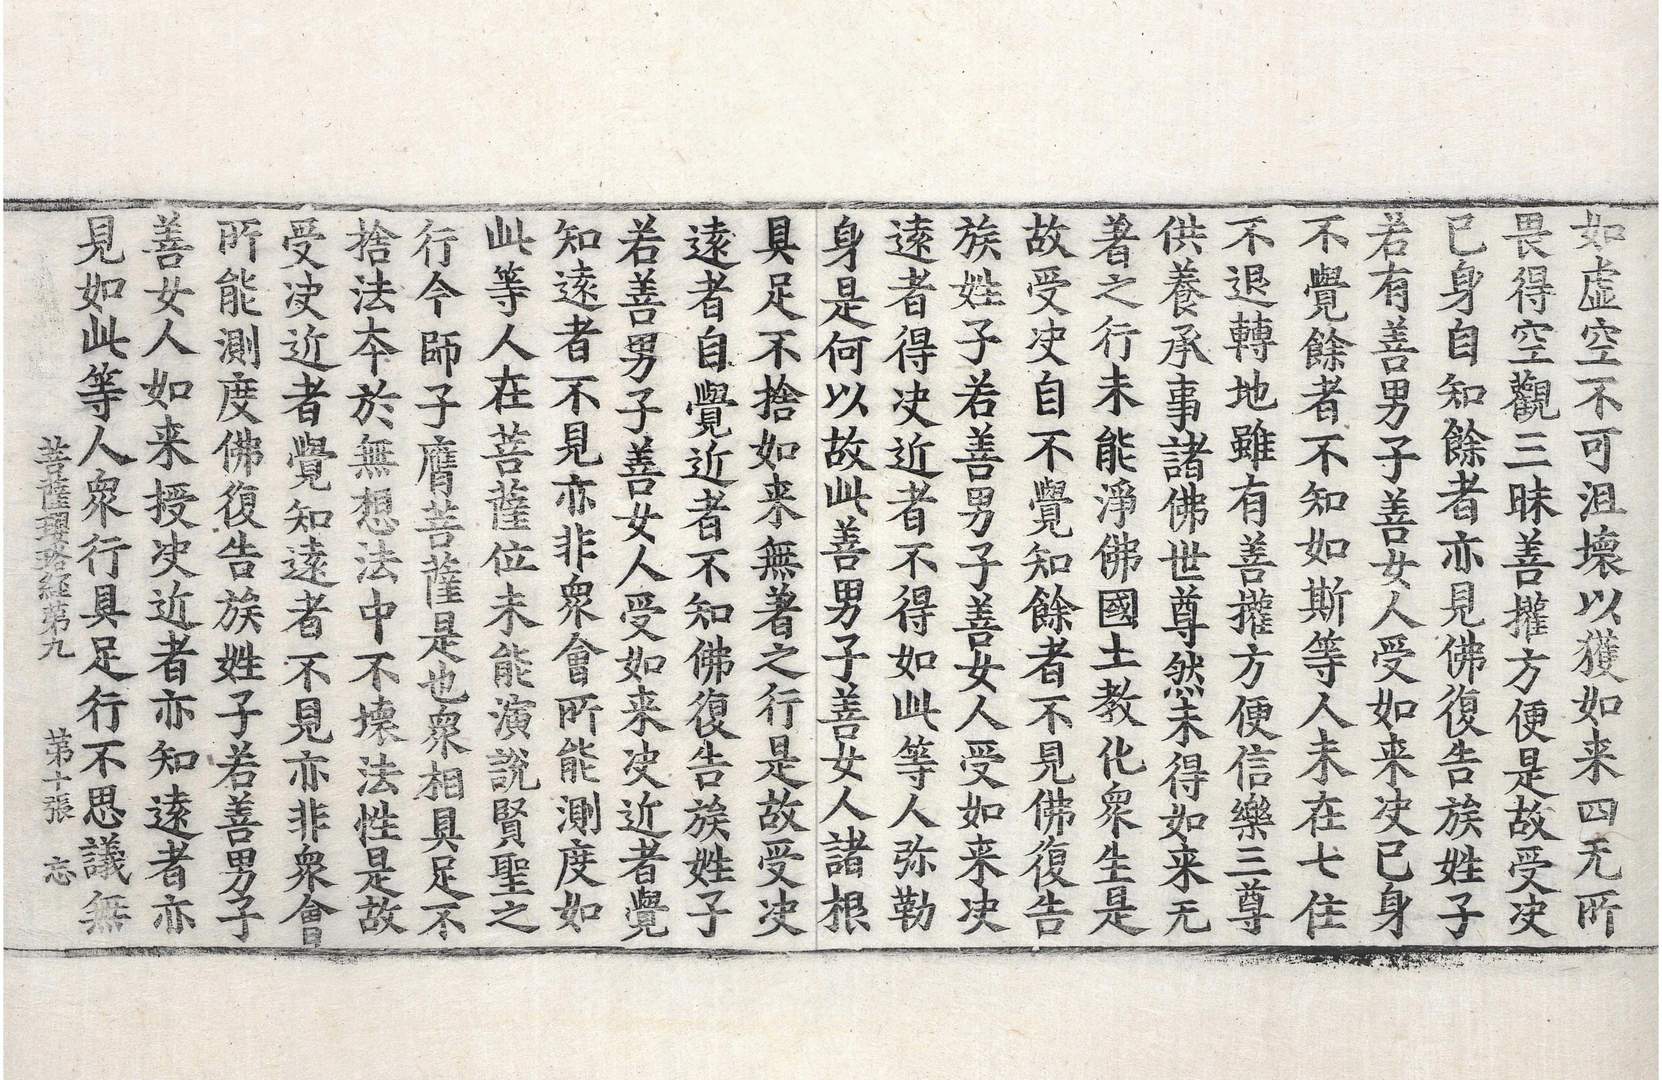 如虛空不可沮壞以獲如来四无所
畏得空觀三昧善攉方便是故受决
已身自知餘者亦見佛復告族姓子
若有善男子善女人受如来决已身
不覺餘者不知如斯等人未在七住
不退轉地雖有善攉方便信樂三尊
供養承事諸佛世尊然未得如来无
著之行未能淨佛國土教化衆生是
故受决自不覺知餘者不見佛復告
族姓子若善男子善女人受如来决
遠者得决近者不得如此等人弥勒
身是何以故此善男子善女人諸根
具足不捨如来無著之行是故受决
遠者自覺近者不知佛復告族姓子
若善男子善女人受如来决近者覺
知遠者不見亦非衆會所能測度如
此等人在菩薩位未能演說賢聖之
行今師子膺菩薩是也衆相具足不
捨法本於無想法中不壞法性是故
受决近者覺知遠者不見亦非衆會
所能測度佛復告族姓子若善男子
善女人如来授决近者亦知遠者亦
見如此等人衆行具足行不思議無
菩薩瓔珞經第九　第十張　忘